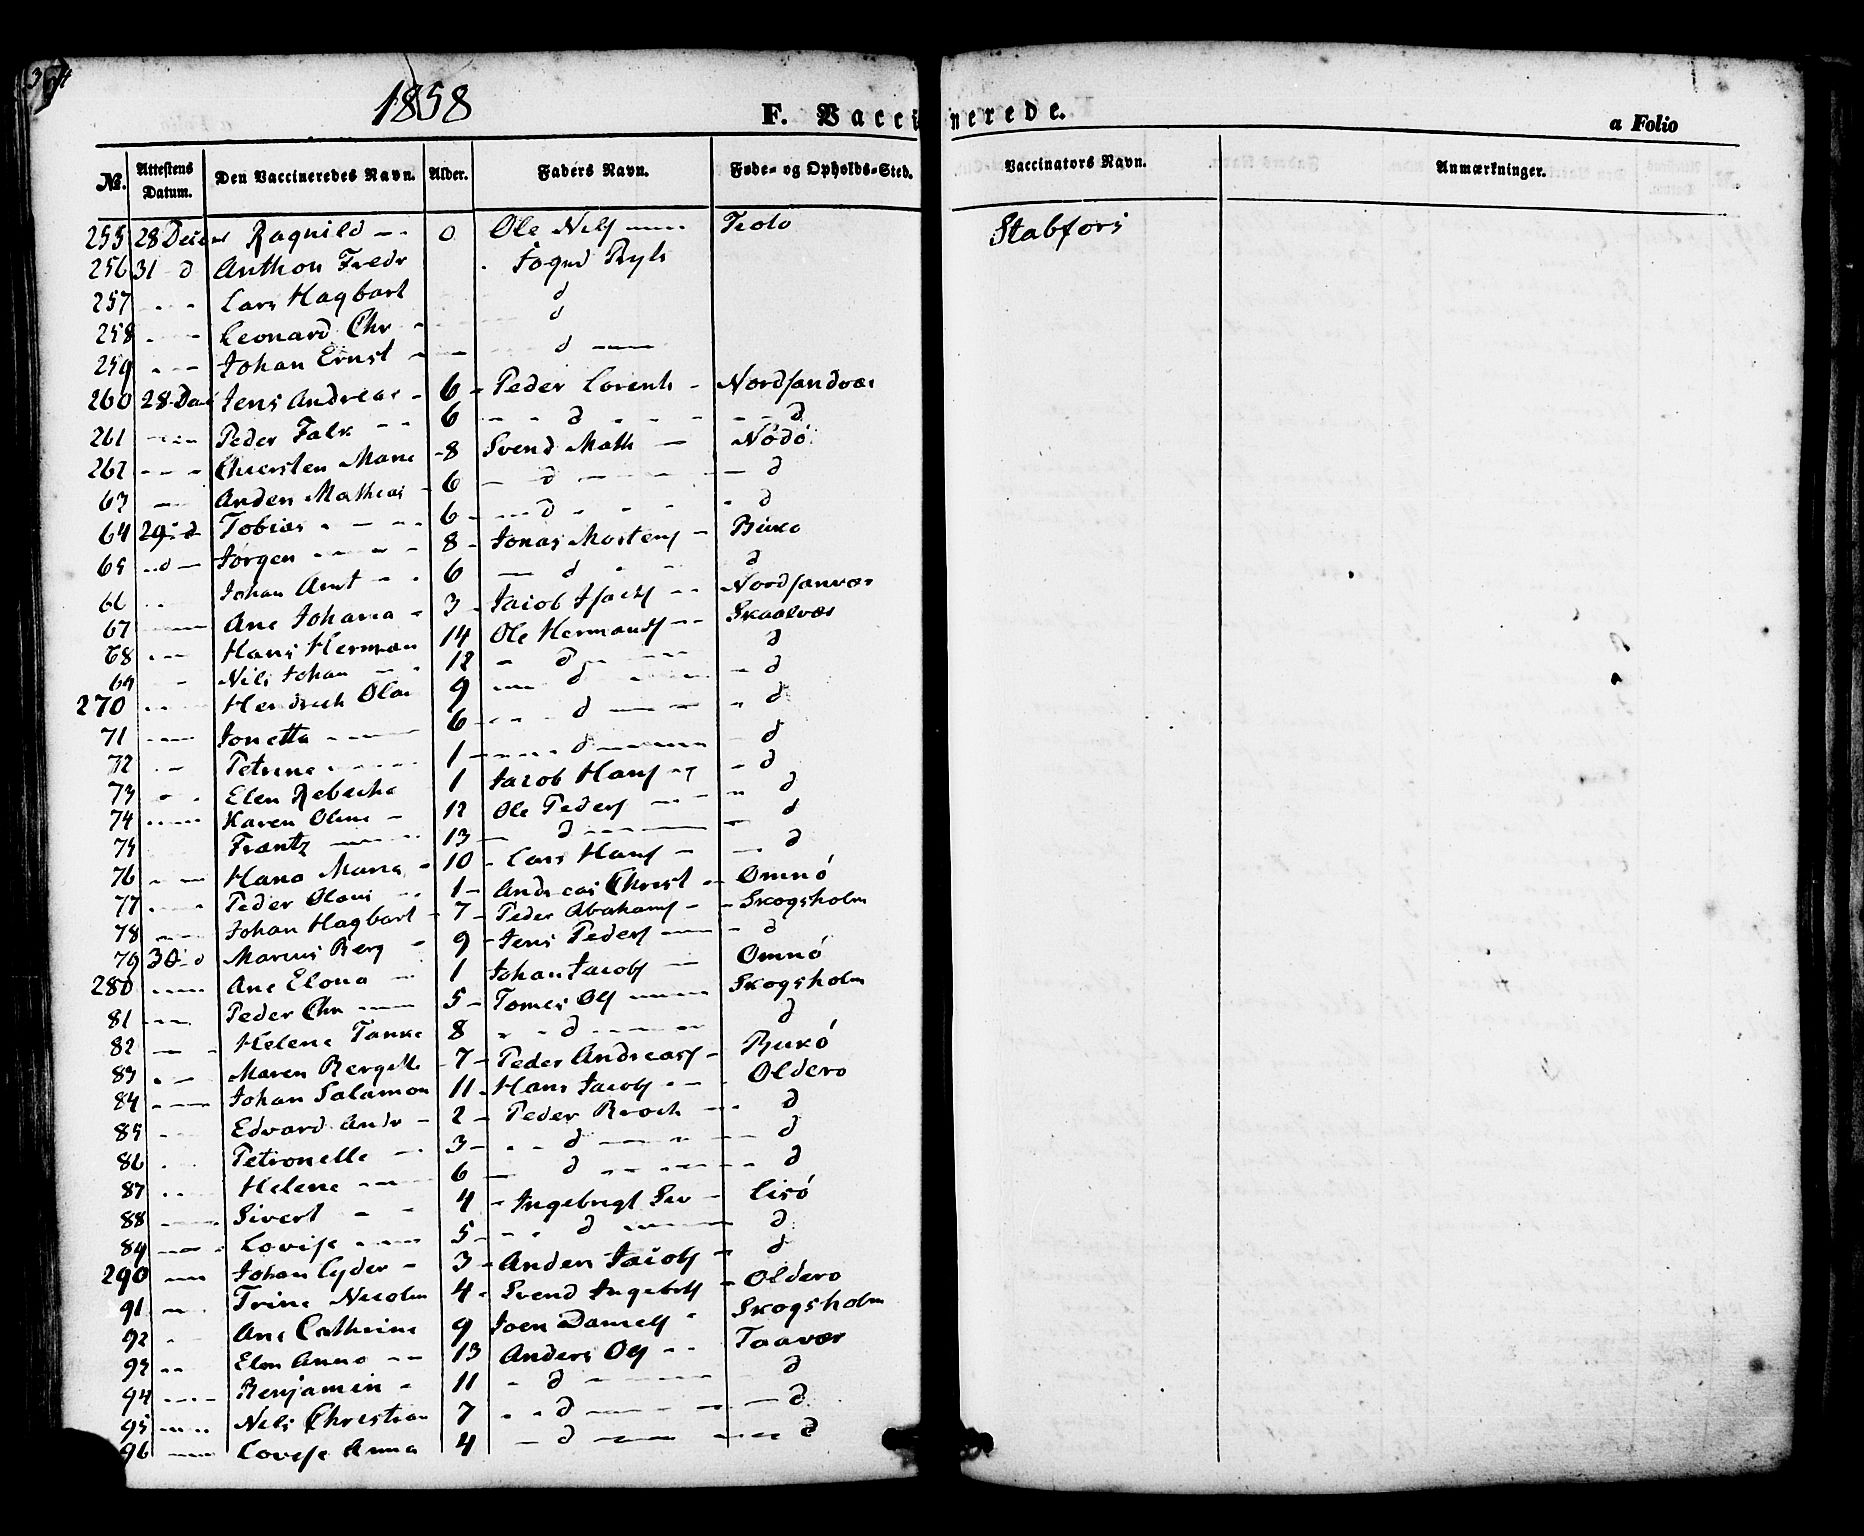 1858
F. Vaccinerede.
a Folio
No. Attestens Datum. Den Vaccineredes Navn. Alder. Faders Navn. Føde- og Opholds-Sted. Vaccinators Navn. Anmærkninger.
255 28 Decem Ragnild - - 0 Ole Nils Teolo Stabfors
256 31 d Anthon Fredr Fogud
257 - - - Lars Hagbart d
258 - - Leonard Chr - d
259 - - - Johan Ernst - d
260 28 Dec Jens Andreas - 6 - Peder Lorents - Nordsandvær
261 - - - Peder Falk - - 6 - - d - - - d
262 - - - Chiersten Marie - 8 Svend Math - Nødø
63 - - Anders Mathias - 6 - d - - - d
64 29 d Tobias - - - 6 - - d - - - d
65 - d - Jørgen - - - 8 - Jonas Mortens - Buko
66 - - Johan Arnt - - 6 - d - - d
67 - Ane Johana - 3 - Jacob Isacs - - Nordsanvær
68 - - - Hans Herman 14 Ole Hermands - - Skaalvær
69 - Nils Johan - - 12 - d - - d
270 - - Hendrich Olai 9 - d - - d
71 - - Jonetta - - 6 - - d - - d
72 - - Petrine - - 1 - - d - - d
73 - - Elen Rebecka 1 Jacob Hans - - - d
74 - - Karen Oline - 12 Ole Peders - - - d
75 Frantz - - 13 - d - - d
76 - - Hana Maria - 10 - Lars Hans - - d
77 - - Peder Olaus - - 1 - Andreas Christ - - Omnø
78 - - Johan Hagbart - 7 - Peder Abrahams - - Skogsholm
79 30 d Marius Berg - 9 - Jens Peders - - d
280 - - Ane Elona - 1 Johan Jacobs - Omnø
81 - - Peder Chr - 5 - Tomes Ols - Skogsholm
82 - - Helene Tanke 8 - - d - - d
83 - - Maren Bergitte - 7 - Peder Andreass - Bukø
84 - - Johan Salamon 11 - Hans Jacobs - - Oldero
85 - - Edvard Andr - 2 - Peder Broch - - d
86 - - Petronelle - - 3 - - - d - - d
87 - - Helene - - 6 - d - - - d
88 - - Sivert - - 4 - Ingebrigt Siv - Lisø
89 - - Lovise - - 5 - - - d - d
290 - - Johan Cyder - 3 - Anders Jacobs - d
91 - - Trine Nicolin 4 - Svend Ingebrts - Oldero
92 - Ane Cathrine 9 Joen Daniels - Skogsholm
93 - - Elen Anna - - 13 Anders Ols - - Taavær
94 - - Benjamin - 11 - d - - d
95 - - Nels Christian 7 - - d - - d
96 - - Lovise Anna 4 - d - - d